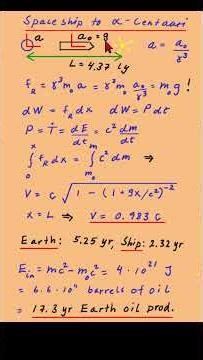 Spaceship to α-Centauri
a a₀ = g a = a₀/γ³
L = 4.37 ly
f_R = γ³m₀a = γ³m₀ a₀/γ³ = m₀g !
dW = f_R dx dW = P dt
P = Ṫ = dE/dt = c² dm/dt
∫₀ˣ f_R dx = ∫_{m₀}^{m} c² dm ⇒
V = c √(1 - (1 + gx/c²)⁻²)
x = L ⇒ V = 0.983 c
Earth: 5.25 yr, Ship: 2.32 yr
= mc² - m₀c² = 4 · 10²¹ J
= 6.6 · 10¹¹ barrels of oil
= 17.3 yr Earth oil prod.